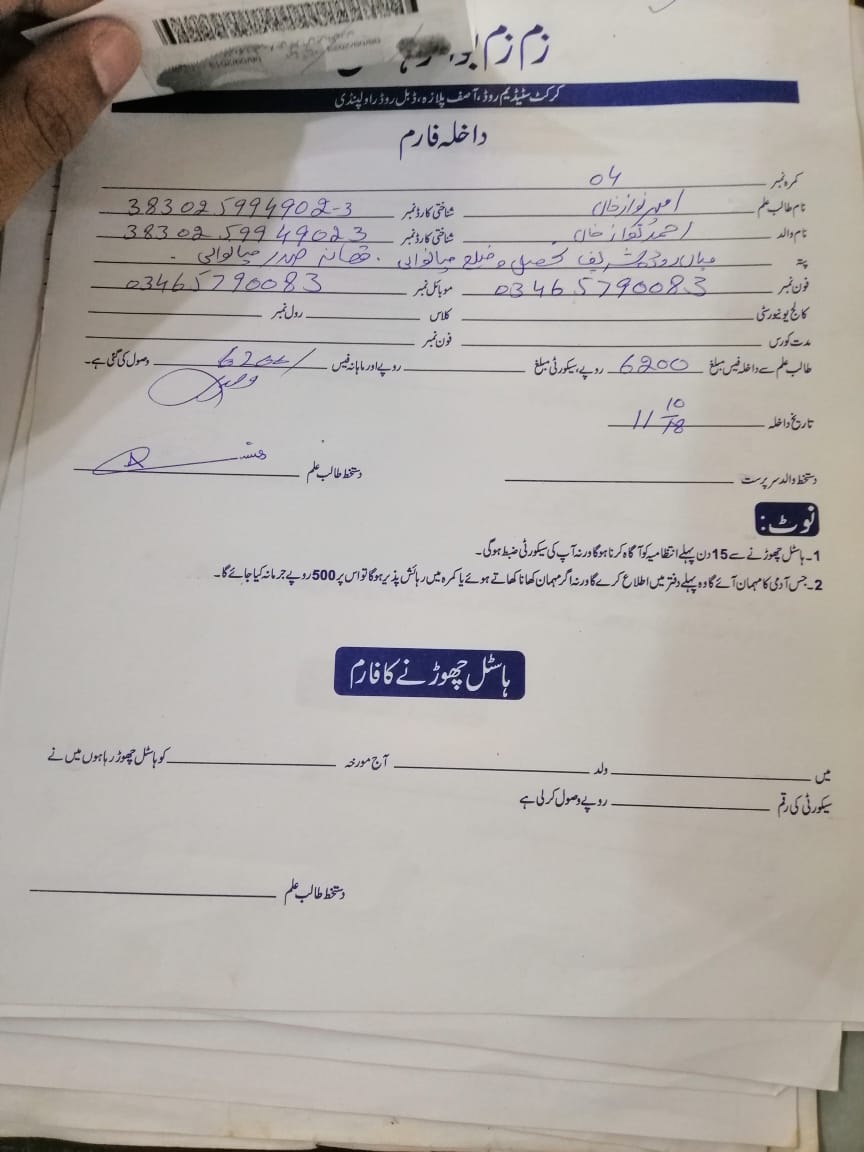 زم زم
کرکٹ سٹیڈیم روڈ، آصف پلازہ، ڈبل روڈ راولپنڈی
داخلہ فارم
کمرہ نمبر 04
نام طالب علم امیر نواز خان شناختی کارڈ نمبر 383025994902-3
نام والد احمد نواز خان شناختی کارڈ نمبر 3830259949023
پتہ شریف تحصیل و ضلع میانوالی . تھانہ صدر میانوالی .
فون نمبر 03465790083 موبائل نمبر 03465790083
کالج یونیورسٹی کلاس رول نمبر
مدت کورس فون نمبر
طالب علم سے داخلہ فیس مبلغ 6200 روپے، سیکورٹی مبلغ روپے اور ماہانہ فیس 6200/ وصول کی گئی ہے۔
وصول
تاریخ داخلہ 11 10/18
دستخط والد سرپرست دستخط طالب علم
نوٹ:
1۔ ہاسٹل چھوڑنے سے 15 دن پہلے انتظامیہ کو آگاہ کرنا ہوگا ورنہ آپ کی سیکورٹی ضبط ہوگی۔
2۔ جس آدمی کا مہمان آئے گا وہ پہلے دفتر میں اطلاع کرے گا ورنہ اگر مہمان کھانا کھاتے ہوئے یا کمرہ میں رہائش پذیر ہوگا تو اس پر 500 روپے جرمانہ کیا جائے گا۔
ہاسٹل چھوڑنے کا فارم
میں ولد آج مورخہ کو ہاسٹل چھوڑ رہا ہوں میں نے
سیکورٹی کی رقم روپے وصول کر لی ہے
دستخط طالب علم